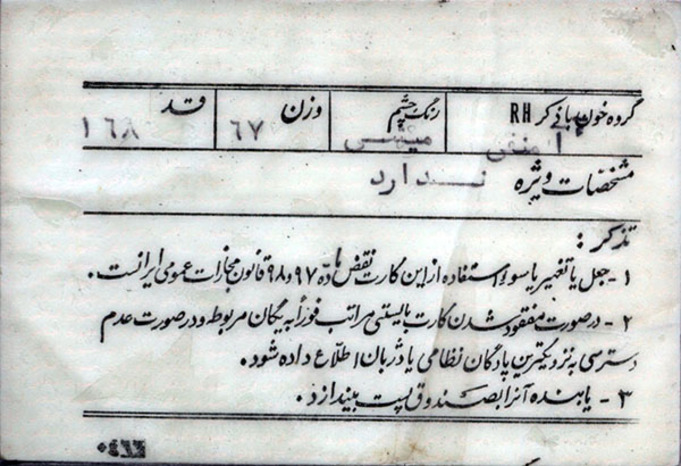 گروه خون با ذکر RH رنگ چشم وزن قد
آ منفی میشی ۶۷ ۱۶۸
مشخصات ویژه ندارد
تذکر :
۱- جعل یا تغییر یا سوء استفاده از این کارت نقض مادّه ۹۷ و ۹۸ قانون مجازات عمومی ایرانست .
۲- در صورت مفقود شدن کارت بایستی مراتب فوراً به یگان مربوطه و در صورت عدم
دسترسی به نزدیکترین پادگان نظامی یا دژبان اطلّاع داده شود .
۳- یابنده آنرا بصندوق پست بیندازد .